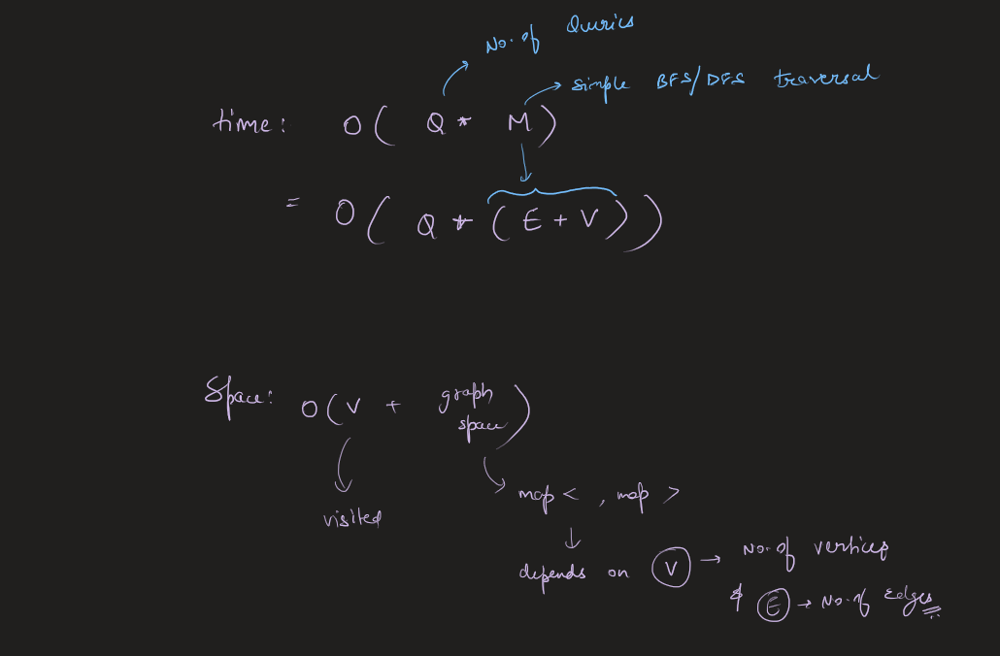 No. of Queries
simple BFS/DFS traversal
time: O( Q * M )
= O( Q * (E + V))
Space: O(V + graph space)
visited
map < , map >
depends on V → No. of vertices
& E → No. of Edges